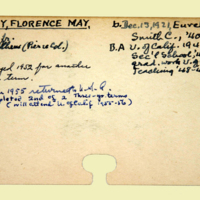 Y, FLORENCE MAY,
b. Dec. 13, 1921, Eure
Smith C., '40
thens (Pierce Col.)
B.A U. of Calif. 194
Sec'l School,
grad. work U.
Teaching '48-
1952 for another
term.
1955 returned U.S.A.
2nd of 2 three-yr. terms
(will attend U of Calif '55-56)